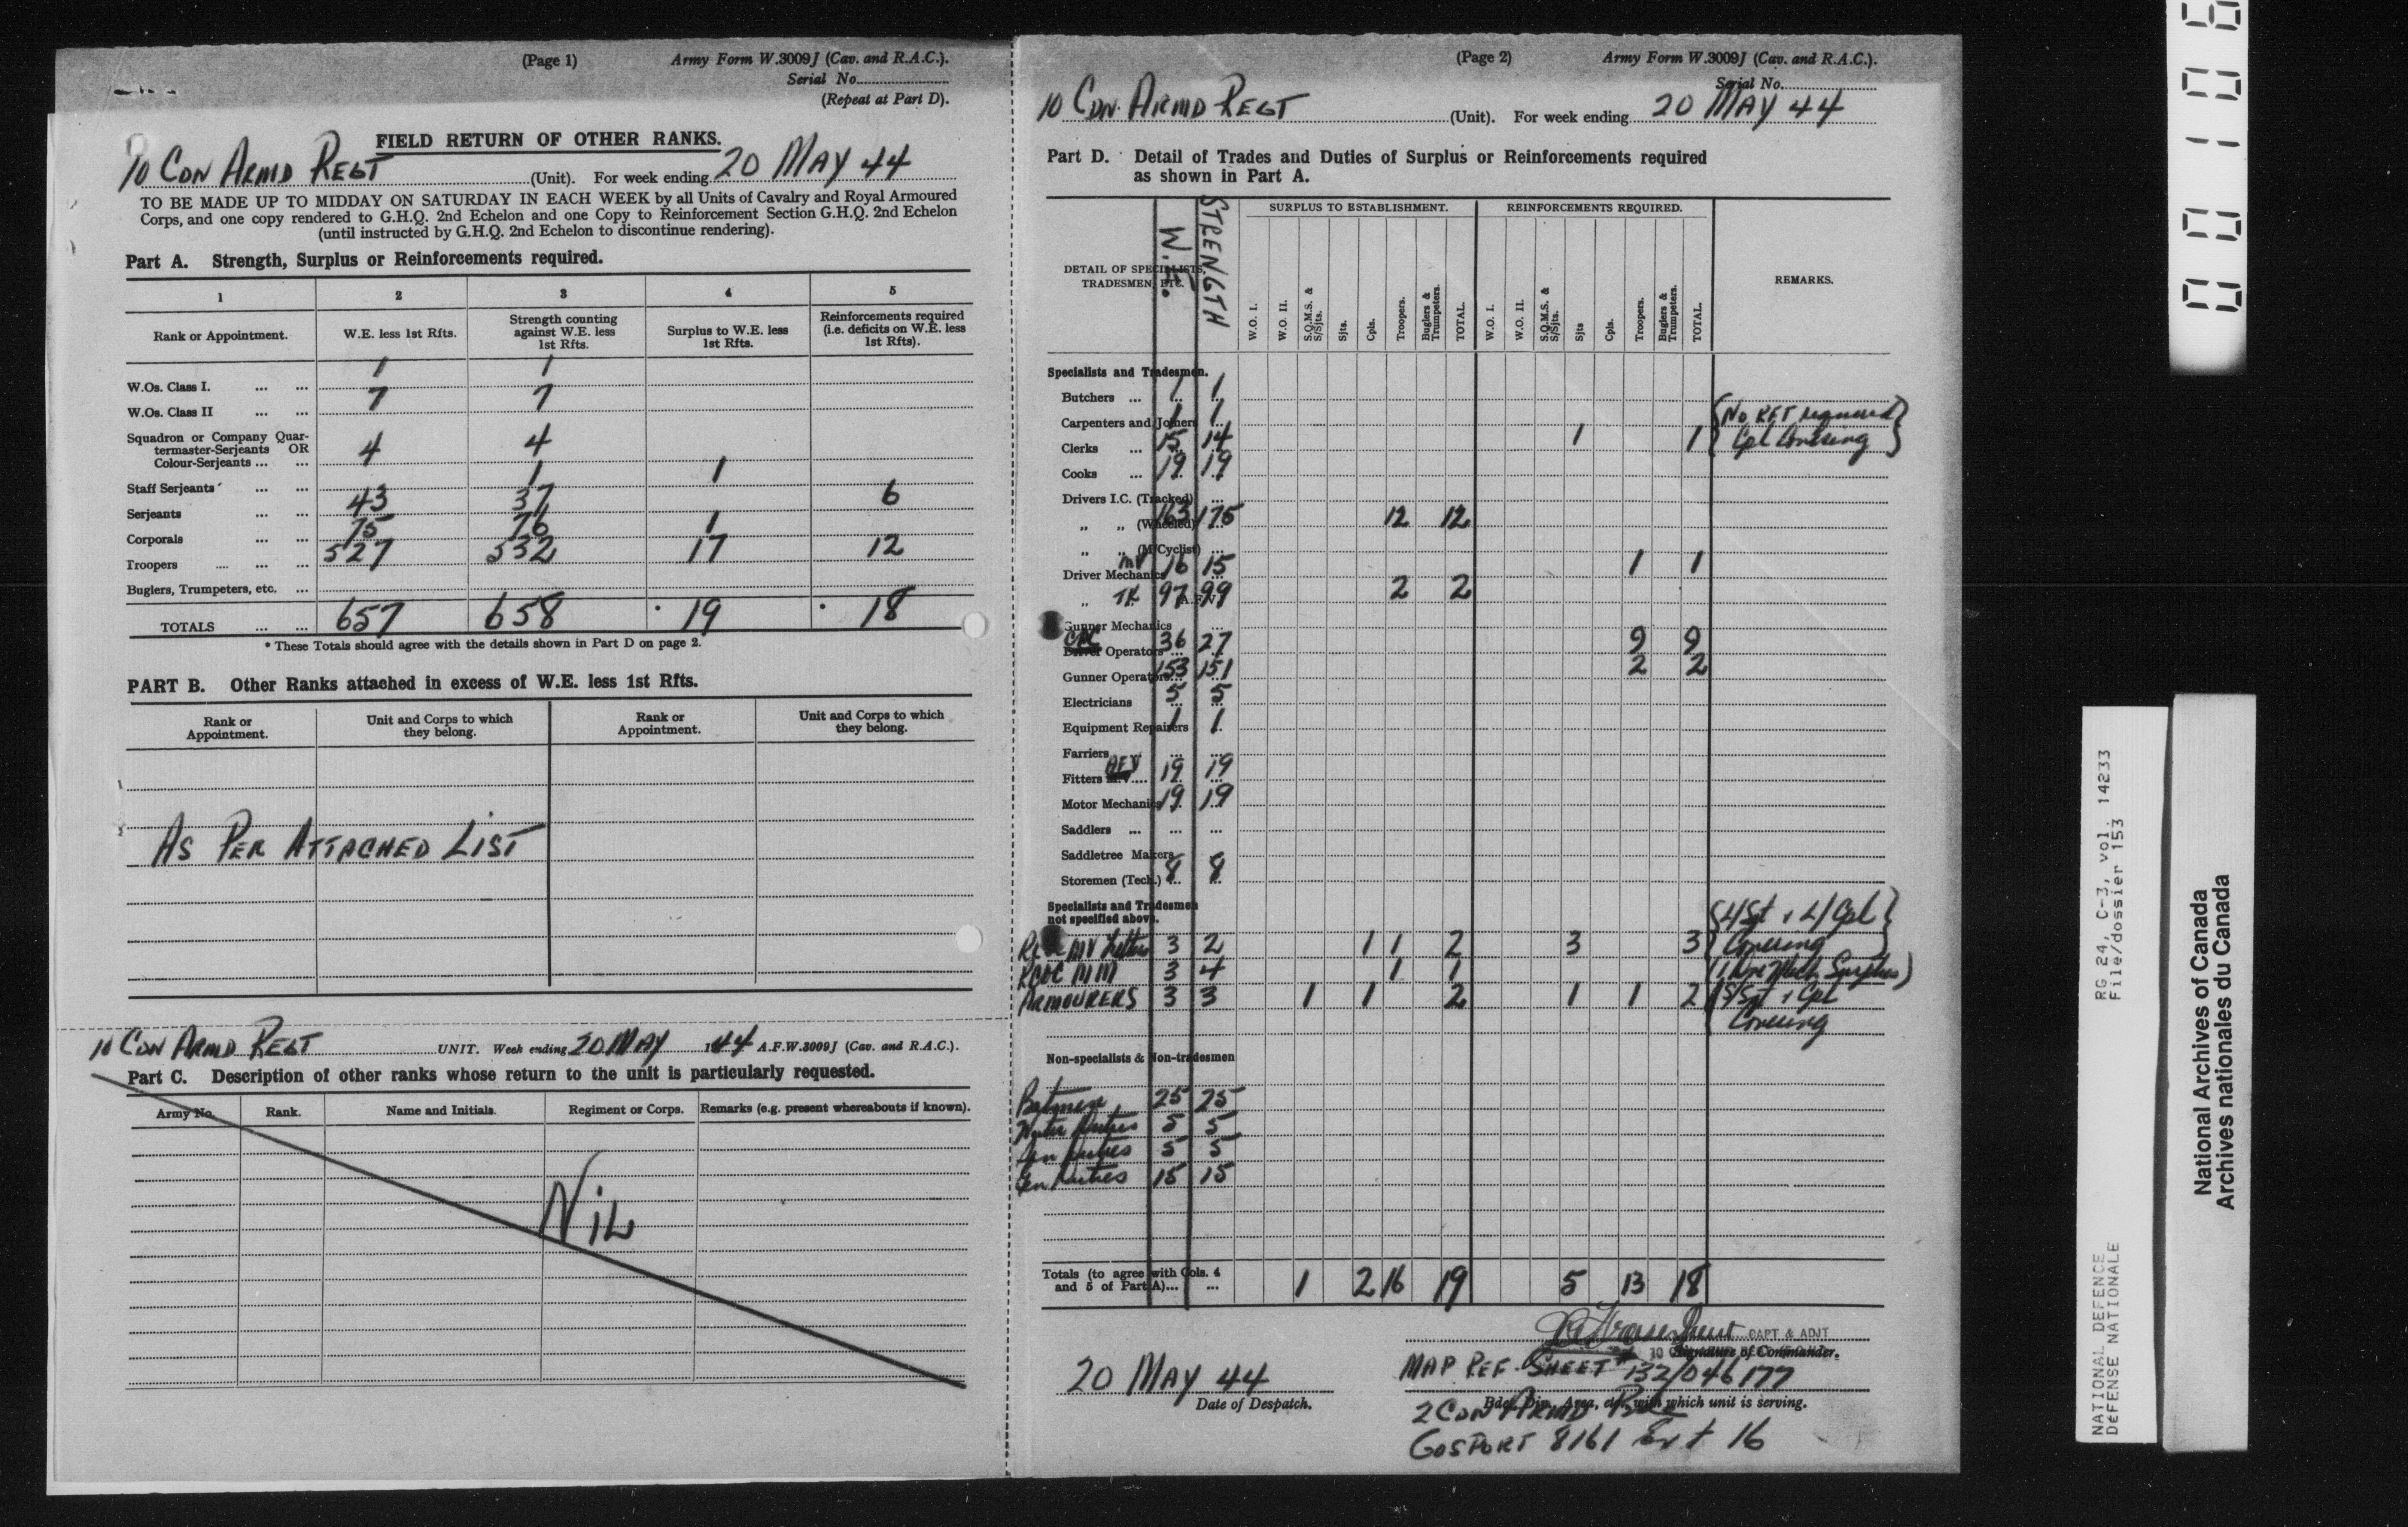 (Page 1) Army Form W.3009J (Cav. and R.A.C.).
Serial No.
(Repeat at Part D).
FIELD RETURN OF OTHER RANKS.
10 CDN ARMD REGT (Unit). For week ending 20 MAY 44
TO BE MADE UP TO MIDDAY ON SATURDAY IN EACH WEEK by all Units of Cavalry and Royal Armoured
Corps, and one copy rendered to G.H.Q. 2nd Echelon and one Copy to Reinforcement Section G.H.Q. 2nd Echelon
(until instructed by G.H.Q. 2nd Echelon to discontinue rendering).
Part A. Strength, Surplus or Reinforcements required.
1 2 3 4 5
Rank or Appointment. W.E. less 1st Rfts. Strength counting against W.E. less 1st Rfts. Surplus to W.E. less 1st Rfts. Reinforcements required (i.e. deficits on W.E. less 1st Rfts).
W.Os. Class I. ... ... 1 1
W.Os. Class II ... ... 7 7
Squadron or Company Quar-
termaster-Serjeants OR
Colour-Serjeants ... ... 4 4
Staff Serjeants ... ... 1 1
Serjeants ... ... 43 37 6
Corporals ... ... 75 76 1
Troopers ... ... ... 527 532 17 12
Buglers, Trumpeters, etc. ...
TOTALS ... ... 657 658 19 18
* These Totals should agree with the details shown in Part D on page 2.
PART B. Other Ranks attached in excess of W.E. less 1st Rfts.
Rank or Appointment. Unit and Corps to which they belong. Rank or Appointment. Unit and Corps to which they belong.
AS PER ATTACHED LIST
10 CDN ARMD REGT UNIT. Week ending 20 MAY 1944 A.F.W.3009J (Cav. and R.A.C.).
Part C. Description of other ranks whose return to the unit is particularly requested.
Army No. Rank. Name and Initials. Regiment or Corps. Remarks (e.g. present whereabouts if known).
NIL
(Page 2) Army Form W.3009J (Cav. and R.A.C.).
Serial No.
10 CDN ARMD REGT (Unit). For week ending 20 MAY 44
Part D. Detail of Trades and Duties of Surplus or Reinforcements required
as shown in Part A.
DETAIL OF SPECIALISTS, TRADESMEN, ETC. W.E. STRENGTH SURPLUS TO ESTABLISHMENT. REINFORCEMENTS REQUIRED. REMARKS.
W.O. I. W.O. II. S.Q.M.S. & S/Sjts. Sjts. Cpls. Troopers. Buglers & Trumpeters. TOTAL. W.O. I. W.O. II. S.Q.M.S. & S/Sjts. Sjts Cpls. Troopers. Buglers & Trumpeters. TOTAL.
Specialists and Tradesmen.
Butchers ... 1 1
Carpenters and Joiners 1 1
Clerks ... 15 14 1 1 (No RFT required Cpl Covering)
Cooks ... 19 19
Drivers I.C. (Tracked) ...
" " (Wheeled) 163 175 12 12
" " (M/Cyclist) ...
Driver Mechanics MV 16 15 1 1
" TK 97 99 2 2
Gunner Mechanics
CPC Driver Operators ... 36 27 9 9
Gunner Operators ... 153 151 2 2
Electricians 5 5
Equipment Repairers 1 1
Farriers ... ...
Fitters AFV 19 19
Motor Mechanics 19 19
Saddlers ... ... ...
Saddletree Makers
Storemen (Tech.) ... 8 8
Specialists and Tradesmen
not specified above.
MV 3 2 1 1 2 3 3 (L/Sgt & L/Cpl Covering)
RCOC MM 3 4 1 1 (1 Surplus)
ARMOURERS 3 3 1 1 2 1 1 2 (S/Sgt & Cpl Covering
Non-specialists & Non-tradesmen
Batmen 25 25
Water Duties 5 5
Duties 5 5
Gen Duties 15 15
Totals (to agree with Cols. 4
and 5 of Part A)... ... 1 2 16 19 5 13 18
CAPT & ADJT
Signature of Commander.
20 MAY 44
Date of Despatch.
MAP REF. SHEET 132/046177
Bde., Div., Area, etc., with which unit is serving.
2 CDN ARMD BDE
GOSPORT 8161 Ext 16
RG 24, C-3, vol. 14233
File/dossier 153
NATIONAL DEFENCE
DÉFENSE NATIONALE
National Archives of Canada
Archives nationales du Canada